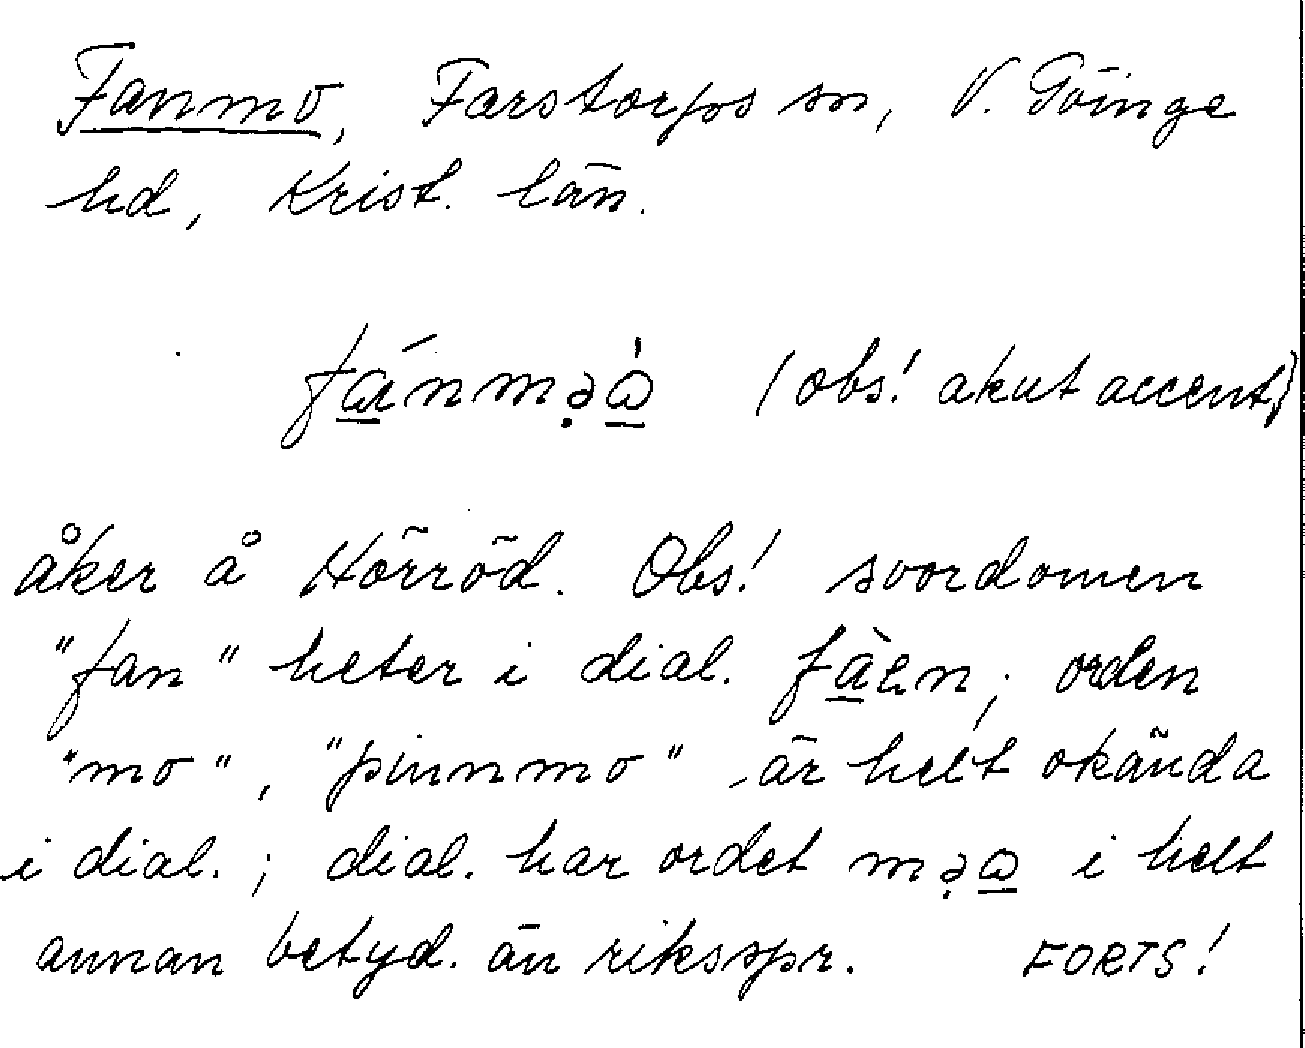 Fanmo, Farstorps sn, V. Göinge
hd, Krist. län.
fá̲nmə̣ὼ̲ (obs! akut accent)
åker å Hörröd. Obs! svordomen
"fan" heter i dial. fà̲en; orden
"mo", "pinnmo" är helt okända
i dial.; dial. har ordet mə̣ω̲ i helt
annan betyd. än riksspr. FORTS!